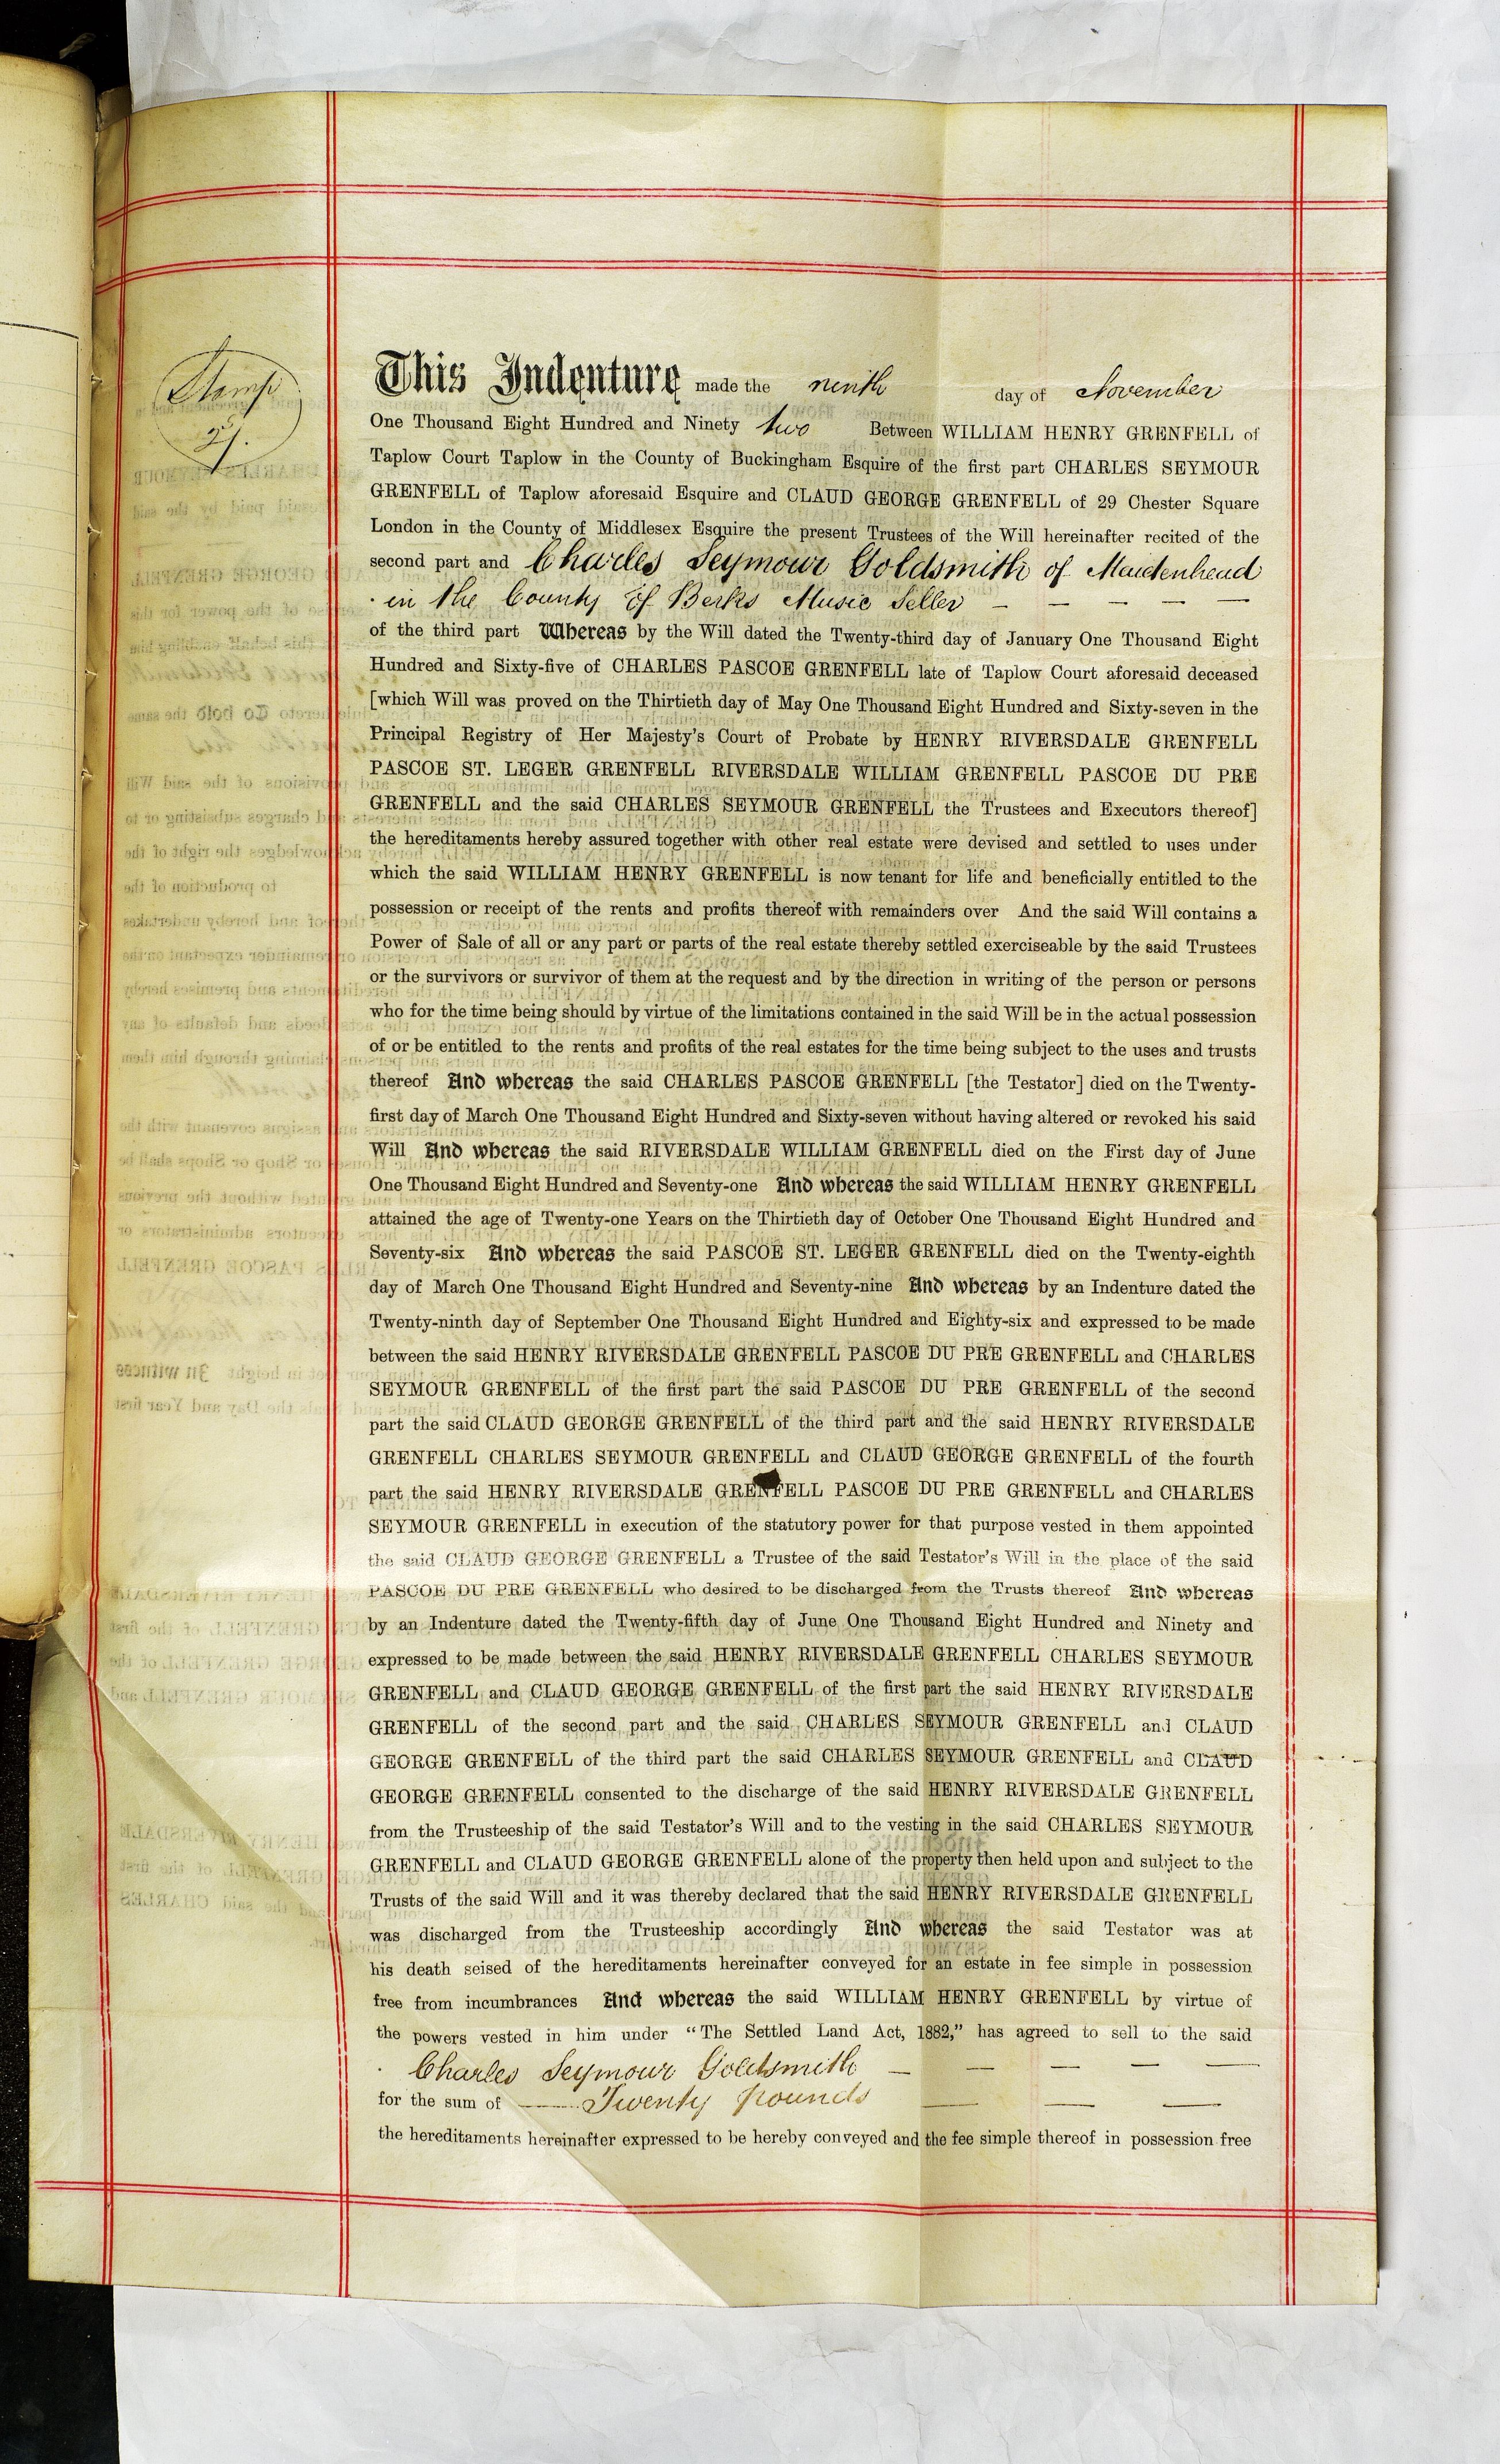 Stamp
2/.
This Indenture made the ninth day of November
One Thousand Eight Hundred and Ninety two Between WILLIAM HENRY GRENFELL of
Taplow Court Taplow in the County of Buckingham Esquire of the first part CHARLES SEYMOUR
GRENFELL of Taplow aforesaid Esquire and CLAUD GEORGE GRENFELL of 29 Chester Square
London in the County of Middlesex Esquire the present Trustees of the Will hereinafter recited of the
second part and Charles Seymour Goldsmith of Maidenhead
in the County of Berks Music Seller
of the third part Whereas by the Will dated the Twenty-third day of January One Thousand Eight
Hundred and Sixty-five of CHARLES PASCOE GRENFELL late of Taplow Court aforesaid deceased
[which Will was proved on the Thirtieth day of May One Thousand Eight Hundred and Sixty-seven in the
Principal Registry of Her Majesty's Court of Probate by HENRY RIVERSDALE GRENFELL
PASCOE ST. LEGER GRENFELL RIVERSDALE WILLIAM GRENFELL PASCOE DU PRE
GRENFELL and the said CHARLES SEYMOUR GRENFELL the Trustees and Executors thereof]
the hereditaments hereby assured together with other real estate were devised and settled to uses under
which the said WILLIAM HENRY GRENFELL is now tenant for life and beneficially entitled to the
possession or receipt of the rents and profits thereof with remainders over And the said Will contains a
Power of Sale of all or any part or parts of the real estate thereby settled exerciseable by the said Trustees
or the survivors or survivor of them at the request and by the direction in writing of the person or persons
who for the time being should by virtue of the limitations contained in the said Will be in the actual possession
of or be entitled to the rents and profits of the real estates for the time being subject to the uses and trusts
thereof And whereas the said CHARLES PASCOE GRENFELL [the Testator] died on the Twenty-
first day of March One Thousand Eight Hundred and Sixty-seven without having altered or revoked his said
Will And whereas the said RIVERSDALE WILLIAM GRENFELL died on the First day of June
One Thousand Eight Hundred and Seventy-one And whereas the said WILLIAM HENRY GRENFELL
attained the age of Twenty-one Years on the Thirtieth day of October One Thousand Eight Hundred and
Seventy-six And whereas the said PASCOE ST. LEGER GRENFELL died on the Twenty-eighth
day of March One Thousand Eight Hundred and Seventy-nine And whereas by an Indenture dated the
Twenty-ninth day of September One Thousand Eight Hundred and Eighty-six and expressed to be made
between the said HENRY RIVERSDALE GRENFELL PASCOE DU PRE GRENFELL and CHARLES
SEYMOUR GRENFELL of the first part the said PASCOE DU PRE GRENFELL of the second
part the said CLAUD GEORGE GRENFELL of the third part and the said HENRY RIVERSDALE
GRENFELL CHARLES SEYMOUR GRENFELL and CLAUD GEORGE GRENFELL of the fourth
part the said HENRY RIVERSDALE GRENFELL PASCOE DU PRE GRENFELL and CHARLES
SEYMOUR GRENFELL in execution of the statutory power for that purpose vested in them appointed
the said CLAUD GEORGE GRENFELL a Trustee of the said Testator's Will in the place of the said
PASCOE DU PRE GRENFELL who desired to be discharged from the Trusts thereof And whereas
by an Indenture dated the Twenty-fifth day of June One Thousand Eight Hundred and Ninety and
expressed to be made between the said HENRY RIVERSDALE GRENFELL CHARLES SEYMOUR
GRENFELL and CLAUD GEORGE GRENFELL of the first part the said HENRY RIVERSDALE
GRENFELL of the second part and the said CHARLES SEYMOUR GRENFELL and CLAUD
GEORGE GRENFELL of the third part the said CHARLES SEYMOUR GRENFELL and CLAUD
GEORGE GRENFELL consented to the discharge of the said HENRY RIVERSDALE GRENFELL
from the Trusteeship of the said Testator's Will and to the vesting in the said CHARLES SEYMOUR
GRENFELL and CLAUD GEORGE GRENFELL alone of the property then held upon and subject to the
Trusts of the said Will and it was thereby declared that the said HENRY RIVERSDALE GRENFELL
was discharged from the Trusteeship accordingly And whereas the said Testator was at
his death seised of the hereditaments hereinafter conveyed for an estate in fee simple in possession
free from incumbrances And whereas the said WILLIAM HENRY GRENFELL by virtue of
the powers vested in him under "The Settled Land Act, 1882," has agreed to sell to the said
Charles Seymour Goldsmith
for the sum of Twenty Pounds
the hereditaments hereinafter expressed to be hereby conveyed and the fee simple thereof in possession free